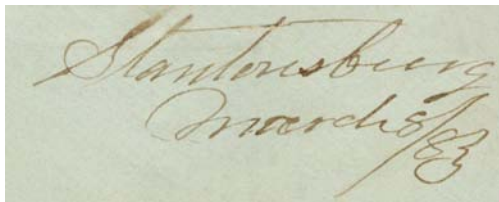 Stantonsburg
March 8/83